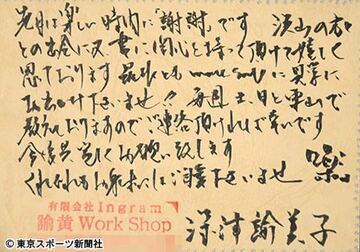 先日は楽しい時間に「謝謝」です 沢山の方
との出会に又書に関心を持って頂けて嬉しく
思っております
お出け下さいませ!! 毎週土、日と
教えておりますのでご連絡頂ければ幸いです
今後共 宜しくお願い致します
くれぐれもお身体にはご自愛下さいませ
有限会社 Ingram
諭黄 Work Shop
深津諭美子
©東京スポーツ新聞社